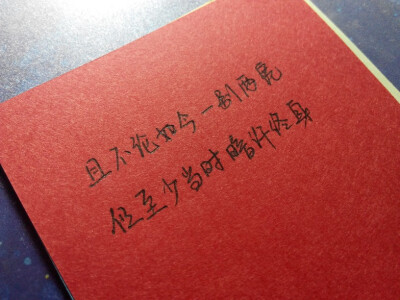 且不论如今一别两宽
但至少当时暗许终身